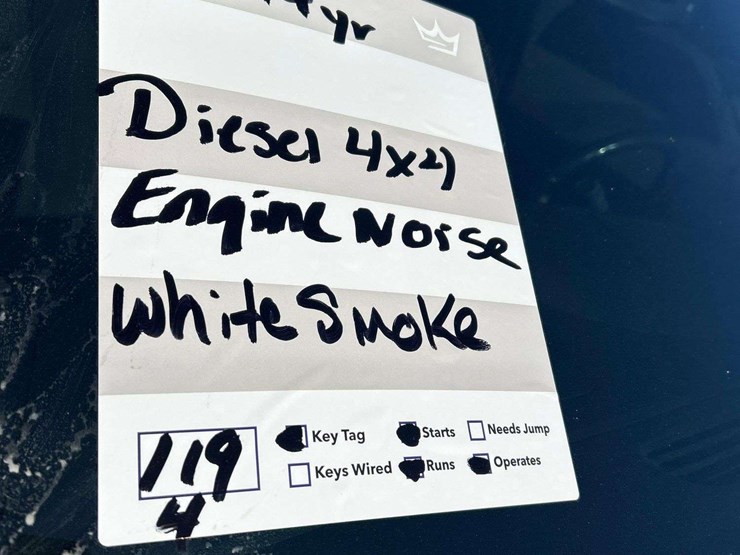 yr
Diesel 4x4
Engine Noise
White Smoke
119
4
Key Tag
Starts
Needs Jump
Keys Wired
Runs
Operates